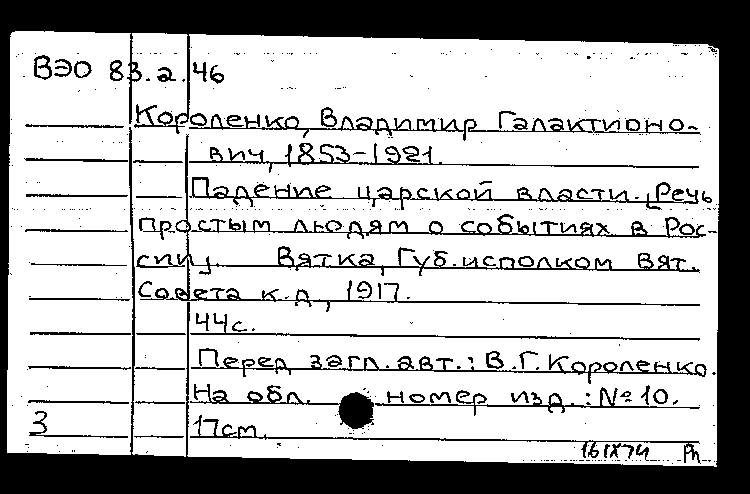 ВЭО 83.2.46
Короленко, Владимир Галактионо-
вич, 1853-1921.
Падение царской власти. [Речь
простым людям о событиях в Рос-
сии]. Вятка, Губ.исполком Вят.
Совета к.д, 1917.
44с.
Перед загл.авт.: В.Г.Короленко.
На обл. номер изд.: №10.
3 17см.
16IX74 Ph